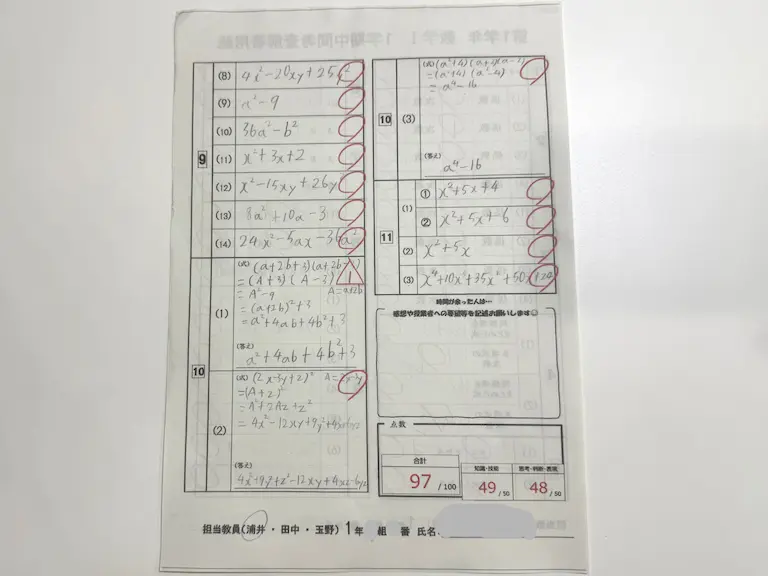 9
(8) 4x²-20xy+25y²
(9) a²-9
(10) 36a²-b²
(11) x²+3x+2
(12) x²-15xy+26y²
(13) 8a²+10a-3
(14) 24x²-5ax-36a²
10
(1)
(式) (a+2b+3)(a+2b-3)
=(A+3)(A-3) A=a+2b
=A²-9
=(a+2b)²+3
=a²+4ab+4b²+3
(答え)
a²+4ab+4b²+3
(2)
(式) (2x-3y+z)² A=2x-3y
=(A+z)²
=A²+2Az+z²
=4x²-12xy+9y²+4xz-6yz
(答え)
4x²+9y²+z²-12xy+4xz-6yz
10
(3)
(式) (a²+4)(a+2)(a-2)
=(a²+4)(a²-4)
=a⁴-16
(答え)
a⁴-16
11
(1)
① x²+5x+4
② x²+5x+6
(2) x²+5x
(3) x⁴+10x³+35x²+50x+24
時間が余った人は…
感想や授業者への要望等を記述お願いします☺
点数
合計
97 /100
知識・技能
49 /50
思考・判断・表現
48 /50
担当教員(浦井・田中・玉野) 1年 組 番 氏名